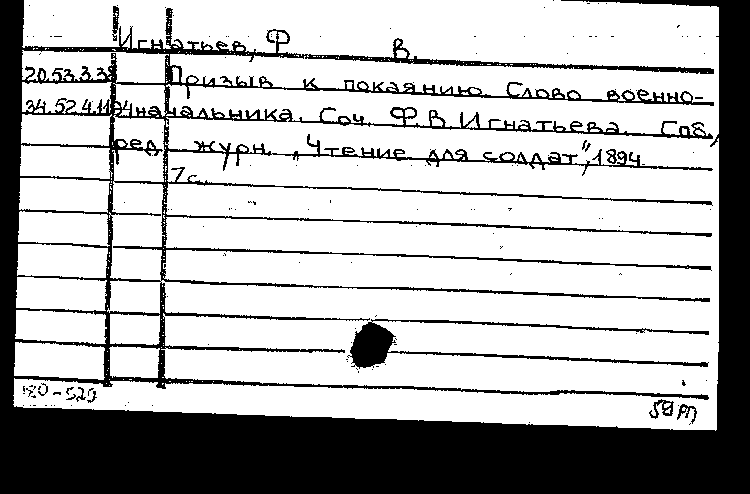 Игнатьев, Ф В.
20.53.3.38 Призыв к покаянию. Слово военно-
34.52.4.1194 начальника. Соч. Ф.В. Игнатьева. Спб.,
ред. журн. „Чтение для солдат", 1894.
7 с.
180-520